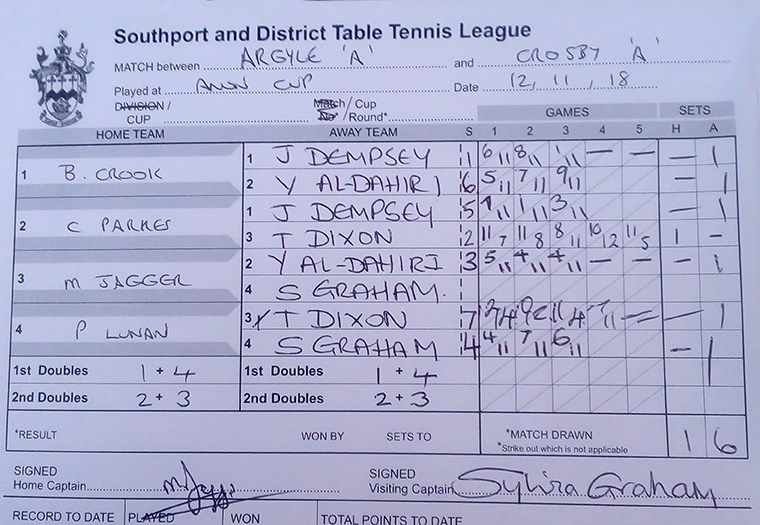 Southport and District Table Tennis League
MATCH between ARGYLE 'A' and CROSBY 'A'
Played at CUP Date 12, 11, 18
DIVISION / CUP Match No / Cup Round*
GAMES SETS
HOME TEAM AWAY TEAM S 1 2 3 4 5 H A
1 B. CROOK 1 J DEMPSEY 1 6 11 8 11 1 11 — — — 1
2 Y AL-DAHIRI 6 5 11 7 11 9 11 — 1
2 C PARKES 1 J DEMPSEY 5 11 1 11 3 11 — 1
3 T DIXON 2 11 7 11 8 8 11 10 12 11 5 1 –
3 M JAGGER 2 Y AL-DAHIRI 3 5 11 4 11 4 11 — — – 1
4 S GRAHAM.
4 P LUNAN 3 T DIXON 7 — 1
4 S GRAHAM 4 4 11 7 11 6 11 – 1
1st Doubles 1 + 4 1st Doubles 1 + 4
2nd Doubles 2 + 3 2nd Doubles 2 + 3
*RESULT WON BY SETS TO *MATCH DRAWN 1 6
*Strike out which is not applicable
SIGNED Home Captain SIGNED Visiting Captain Sylvia Graham
RECORD TO DATE PLAYED WON TOTAL POINTS TO DATE